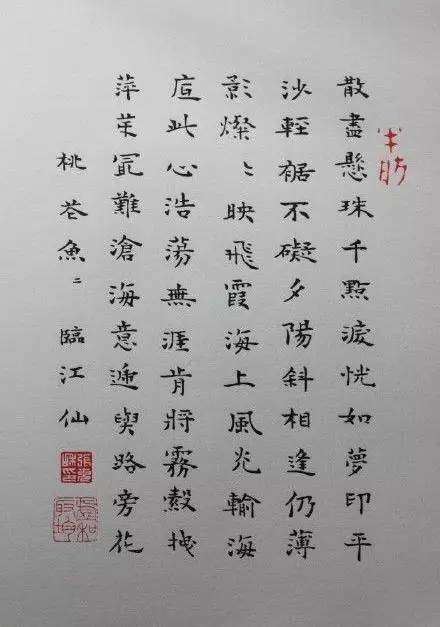 半舫
散盡懸珠千點淚恍如夢印平
沙輕裾不礙夕陽斜相逢仍薄
影燦〻映飛霞海上風光輸海
底此心浩蕩無涯肯將霧縠拽
萍芽冣難滄海意遞與路旁花
桃花魚〻 臨江仙